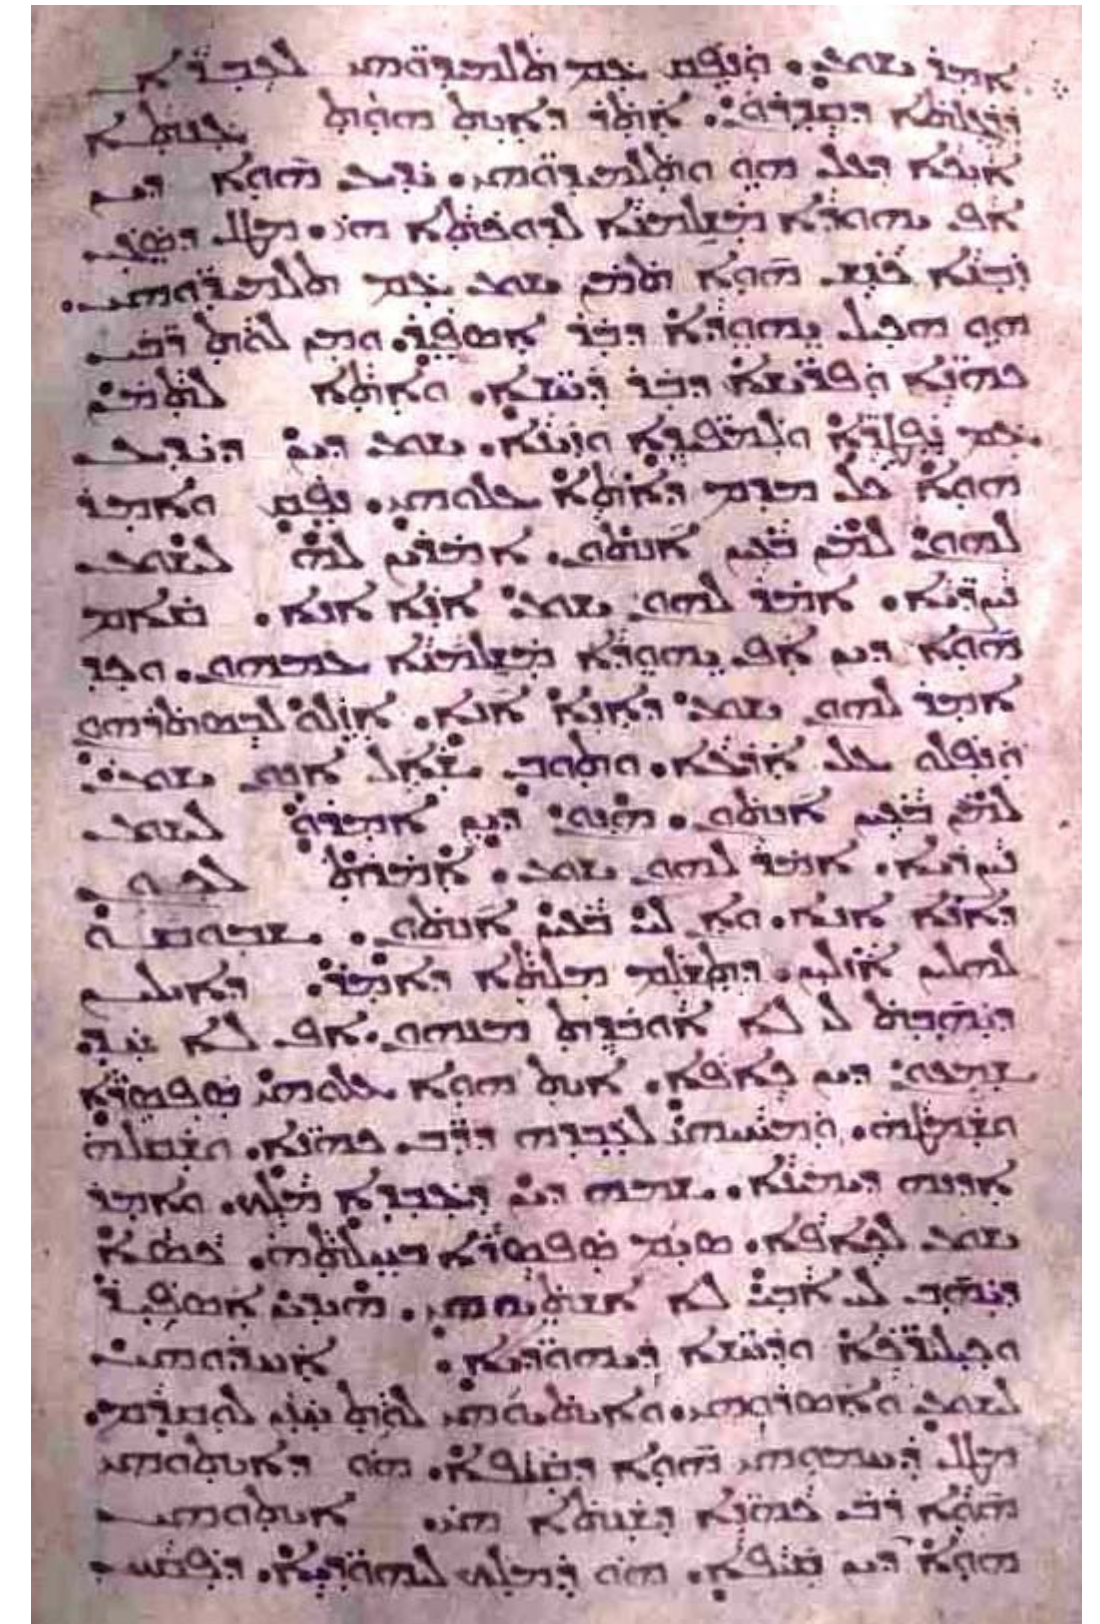 ܐܡܪ ܝܫܘܥ. ܘܢܦܩ ܥܡ ܬܠܡܝܕܘܗܝ ܠܥܒܪܐ
ܕܪܓܠܬܐ ܕܩܕܪܘܢ. ܐܬܪ ܕܐܝܬ ܗܘܬ ܓܢܬܐ
ܐܝܟܐ ܕܥܠ ܗܘ ܘܬܠܡܝܕܘܗܝ. ܝܕܥ ܗܘܐ ܕܝܢ
ܐܦ ܝܗܘܕܐ ܡܫܠܡܢܐ ܠܕܘܟܬܐ ܗܝ. ܡܛܠ ܕܣܓܝ
ܙܒܢܐ ܟܢܫ ܗܘܐ ܬܡܢ ܝܫܘܥ ܥܡ ܬܠܡܝܕܘܗܝ.
ܗܘ ܗܟܝܠ ܝܗܘܕܐ ܕܒܪ ܐܣܦܝܪ. ܘܡܢ ܠܘܬ ܪܒܝ
ܟܗܢܐ ܘܦܪܝܫܐ ܕܒܪ ܕܚܫܐ. ܘܐܬܐ ܠܬܡܢ
ܥܡ ܢܦܛܪܐ ܘܠܡܦܝܕܐ ܘܙܝܢܐ. ܝܫܘܥ ܕܝܢ ܕܝܕܥ
ܗܘܐ ܟܠ ܡܕܡ ܕܐܬܐ ܥܠܘܗܝ. ܢܦܩ ܘܐܡܪ
ܠܗܘܢ ܠܡܢ ܒܥܝܢ ܐܢܬܘܢ. ܐܡܪܝܢ ܠܗ ܠܝܫܘܥ
ܢܨܪܝܐ. ܐܡܪ ܠܗܘܢ ܝܫܘܥ ܐܢܐ ܐܢܐ. ܩܐܡ
ܗܘܐ ܕܝܢ ܐܦ ܝܗܘܕܐ ܡܫܠܡܢܐ ܥܡܗܘܢ. ܘܟܕ
ܐܡܪ ܠܗܘܢ ܝܫܘܥ ܕܐܢܐ ܐܢܐ. ܐܙܠܘ ܠܒܣܬܪܗܘ
ܘܢܦܠܘ ܥܠ ܐܪܥܐ. ܘܬܘܒ ܫܐܠ ܐܢܘܢ ܝܫܘܥ.
ܠܡܢ ܒܥܝܢ ܐܢܬܘܢ. ܗܢܘܢ ܕܝܢ ܐܡܪܘ ܠܝܫܘܥ
ܢܨܪܝܐ. ܐܡܪ ܠܗܘܢ ܝܫܘܥ. ܐܡܪܬ ܠܟܘܢ
ܕܐܢܐ ܐܢܐ. ܘܐܢ ܠܝ ܒܥܝܢ ܐܢܬܘܢ. ܫܒܘܩܘ
ܠܗܠܝܢ ܐܙܠܝܢ. ܕܬܫܠܡ ܡܠܬܐ ܕܐܡܪ. ܕܐܝܠܝܢ
ܕܝܗܒܬ ܠܝ ܠܐ ܐܘܒܕܬ ܡܢܗܘܢ. ܐܦ ܠܐ ܚܕ.
ܫܡܥܘܢ ܕܝܢ ܟܐܦܐ. ܐܝܬ ܗܘܐ ܥܠܘܗܝ ܣܦܣܪܐ
ܘܫܡܛܗ. ܘܡܚܝܗܝ ܠܥܒܕܗ ܕܪܒ ܟܗܢܐ. ܘܫܩܠܗ
ܐܕܢܗ ܕܝܡܝܢܐ. ܫܡܗ ܕܝܢ ܕܥܒܕܐ ܡܠܟ. ܘܐܡܪ
ܝܫܘܥ ܠܟܐܦܐ. ܣܝܡ ܣܦܣܪܐ ܒܚܠܬܗ. ܟܣܐ
ܕܝܗܒ ܠܝ ܐܒܝ ܠܐ ܐܫܬܝܘܗܝ. ܗܝܕܝܢ ܐܣܦܝܪ
ܘܟܠܝܪܟܐ ܘܕܚܫܐ ܕܝܗܘܕܝܐ. ܐܚܕܘܗܝ
ܠܝܫܘܥ ܘܐܣܪܘܗܝ. ܘܐܝܬܝܘܗܝ ܠܘܬ ܚܢܢ ܠܘܩܕܡ.
ܡܛܠ ܕܚܡܘܗܝ ܗܘܐ ܕܩܝܦܐ. ܗܘ ܕܐܝܬܘܗܝ
ܗܘܐ ܪܒ ܟܗܢܐ ܕܫܢܬܐ ܗܝ. ܐܝܬܘܗܝ
ܗܘܐ ܕܝܢ ܩܝܦܐ. ܗܘ ܕܡܠܟ ܠܝܗܘܕܝܐ. ܕܦܩܚ